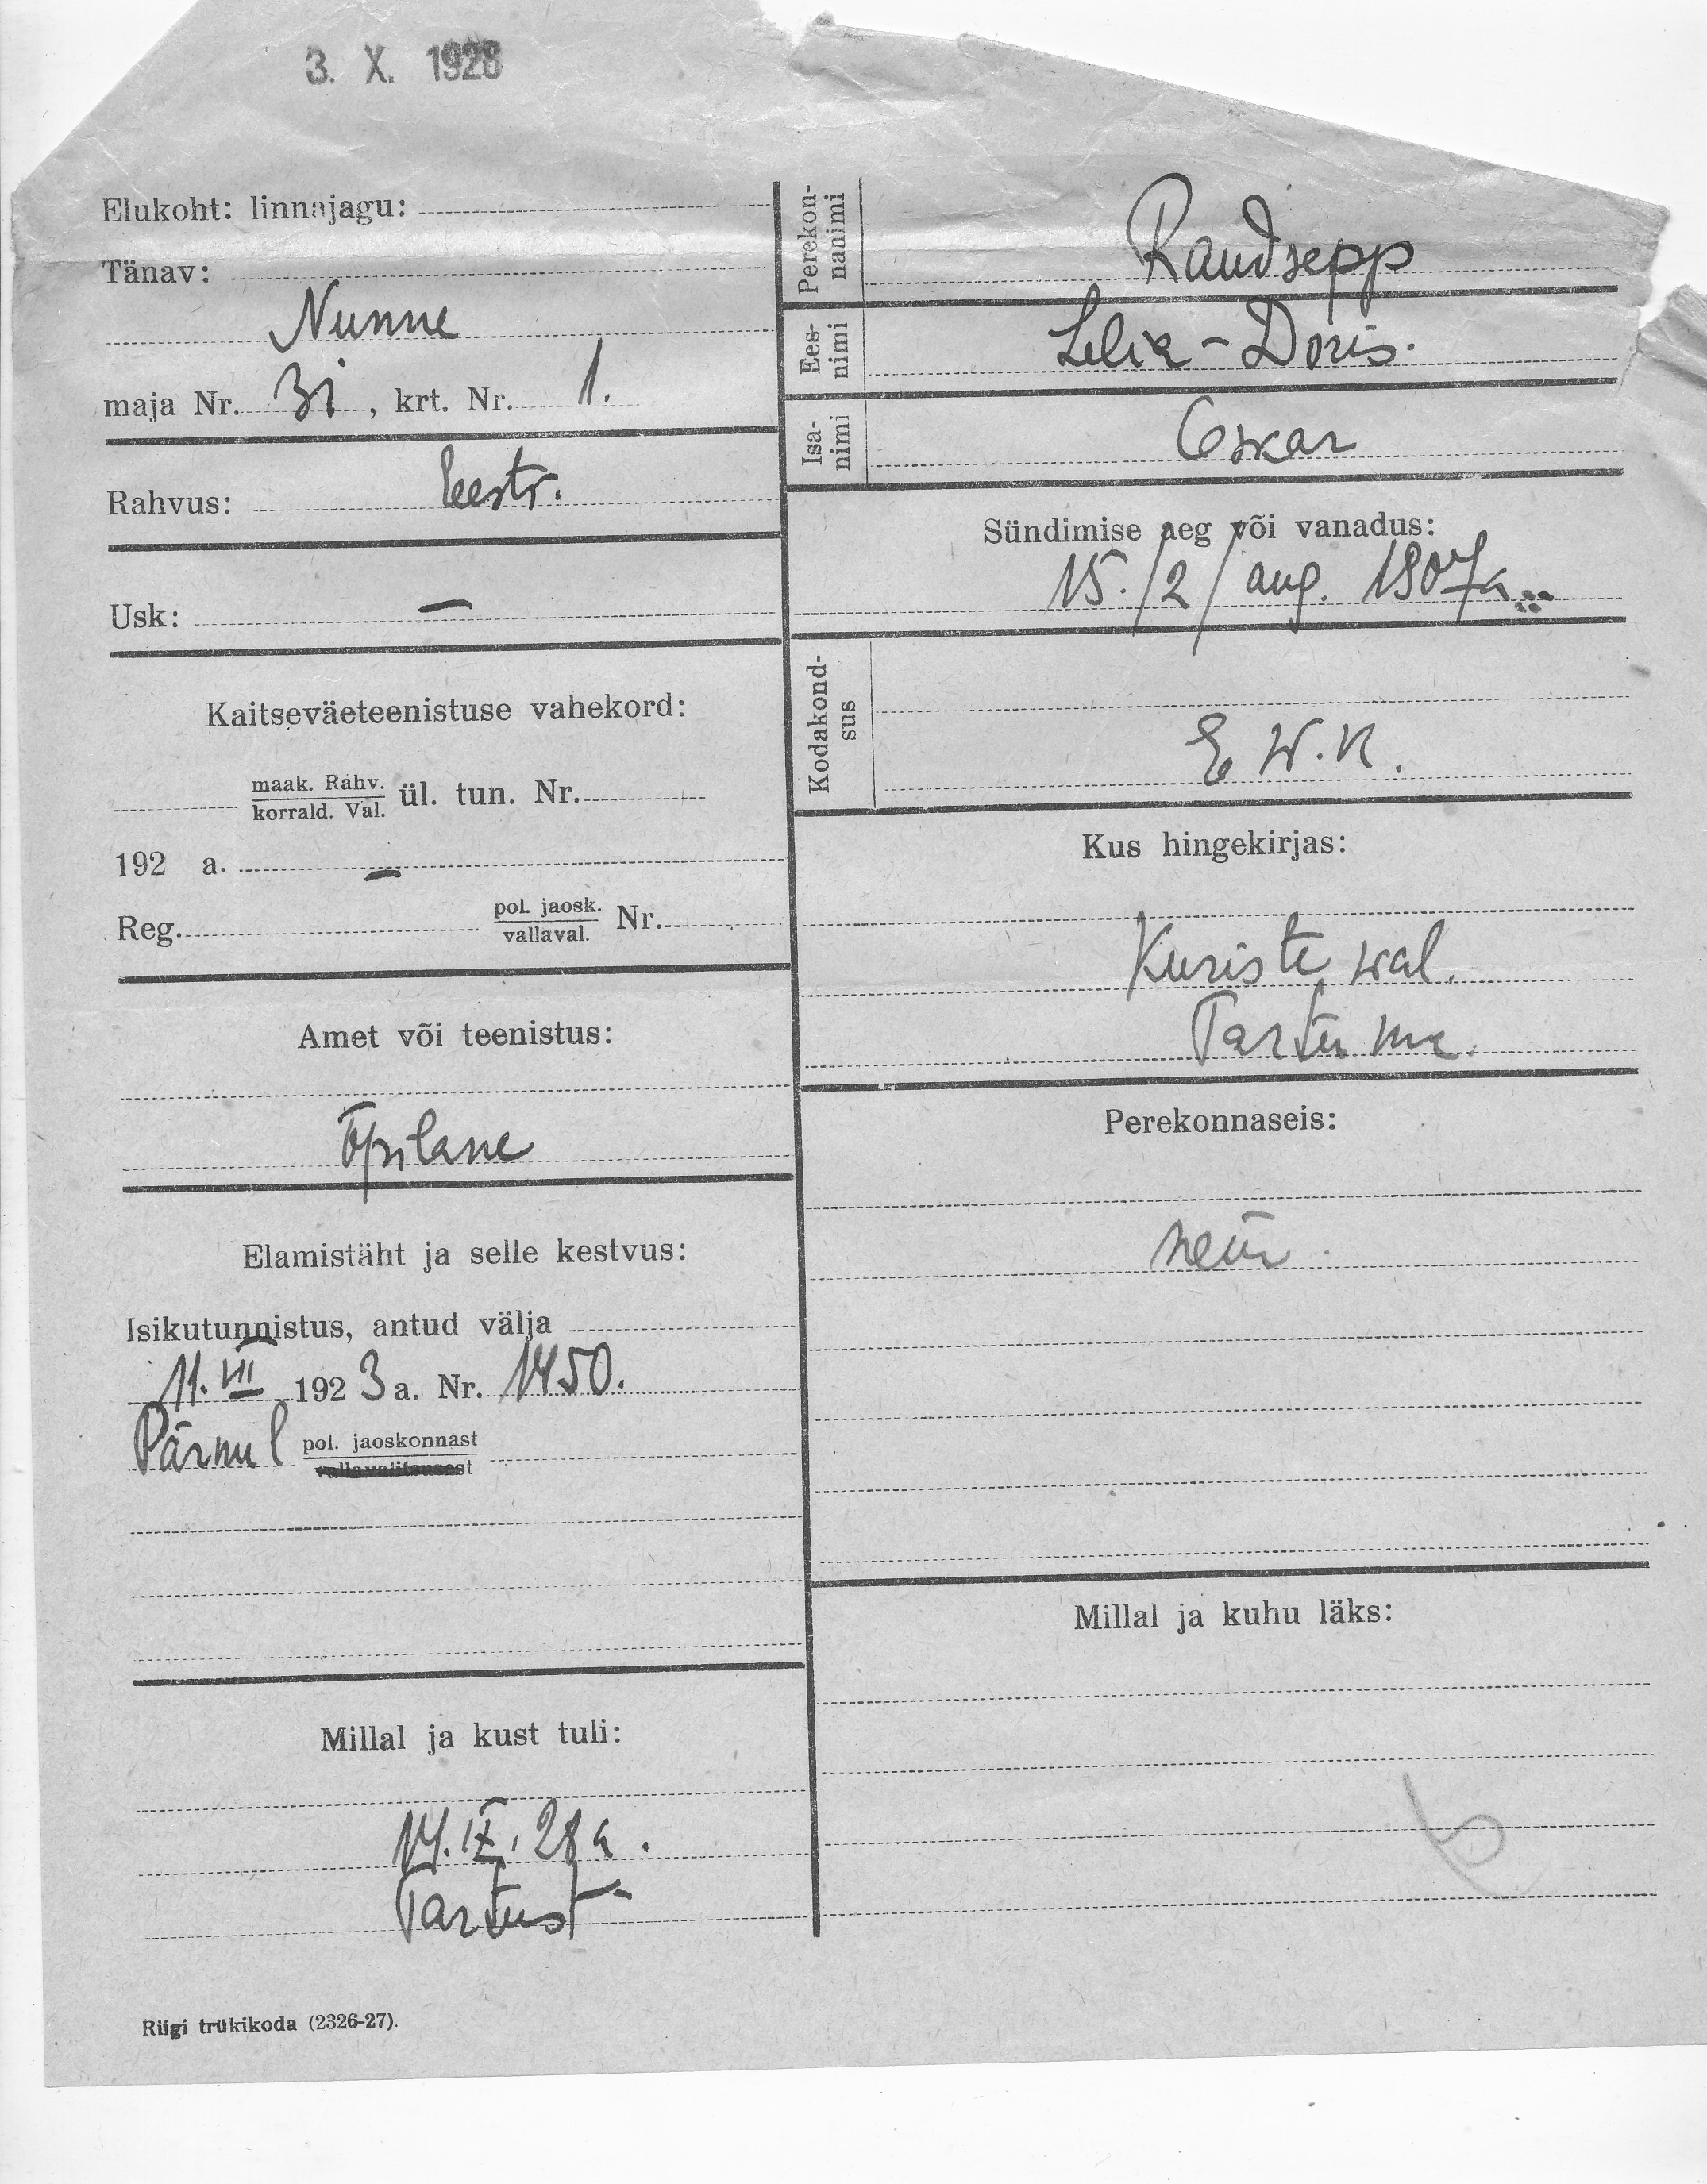 3. X. 1928
Elukoht: linnajagu:
Tänav:
Nunne
maja Nr. 3i, krt. Nr. 1.
Rahvus: Eestr.
Usk: –
Kaitseväeteenistuse vahekord:
maak. Rahv.
korrald. Val. ül. tun. Nr.
192 a. –
Reg. pol. jaosk.
vallaval. Nr.
Amet või teenistus:
Õpilane
Elamistäht ja selle kestvus:
Isikutunnistus, antud välja
11. VII 1923 a. Nr. 1450.
Pärnu l pol. jaoskonnast
vallavalitsusest
Millal ja kust tuli:
14. IX. 28 a.
Tartust
Riigi trükikoda (2326-27).
Perekon-
nanimi
Raudsepp
Ees-
nimi
Doris.
Isa-
nimi
Oskar
Sündimise aeg või vanadus:
15./2/ aug. 1907 a.
Kodakond-
sus
E W. K.
Kus hingekirjas:
Kuriste wal.
Tartu ma.
Perekonnaseis:
neiu.
Millal ja kuhu läks: